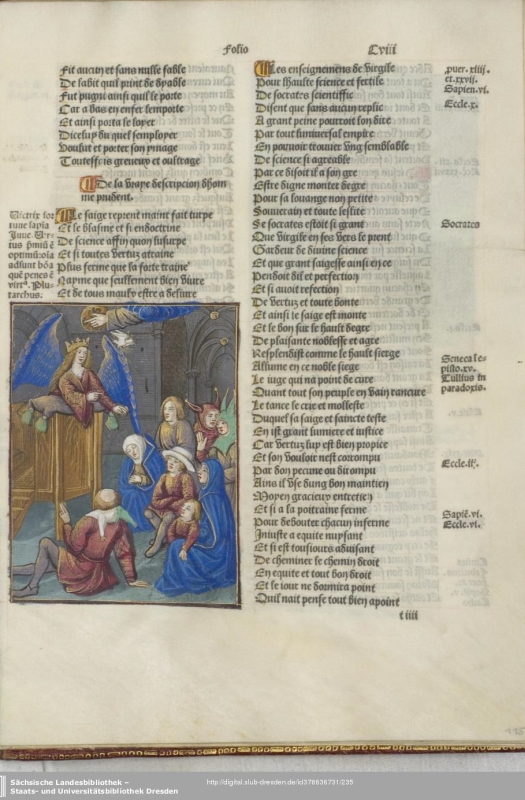 Folio Cviii
Fit aucun et sans nulle fable
De labit quil print de dyable
Fut pugni ainsi quil le porte
Car a bas en enfer lemporte
Et ainsi porta le loyer
Diceluy du quel semployer
Voulut et porter son ymage
Touteffois greueux et oultrage
De la vraye descripcion dhom
me prudent.
Le saige reprent maint fait turpe
Et le blasme et si endoctrine
De science affin quon lusurpe
Et si toutes vertuz atraine
Plus ferme que la forte traine
Nayme que seullement bien viure
Et de tous maulx estre a deliure
Victrix for
tune sapia
Juue. Vir
tus homini est
optimum: oia
adsunt bona
que penes est
virtus. Plu
tarchus.
Les enseignemens de virgile
Pour lhaulte science et fertile
De socrates scientiffic
Disent que sans aucun replic
A grant peine pourroit lon dire
Par tout luniuersal empire
En pouruoir trouuer vng semblable
De science si agreable
Par ce disoit il a son gre
Estre digne monter degre
Pour sa louange non petite
Souuerain et toute leslite
Se socrates estoit si grant
Que virgile en ses vers le prent
Gardeur de diuine science
Et que grant saigesse ainsi en ce
Pendoit dil et perfection
Et si auoit refection
De vertuz et toute bonte
Et ainsi le saige est monte
Et le bon sur le hault degre
De plaisante noblesse et agre
Resplendist comme le hault sierge
Allume en ce noble siege
Le iuge qui na point de cure
Quant tout son peuple en vain rancure
Le tance le crie et molleste
Duquel sa saige et saincte teste
En ist grant lumiere et iustice
Car vertuz luy est bien propice
Et son vouloir nest corrompu
Par don pecune ou dirompu
Ains il vse dung bon maintien
Moyen gracieux entretien
Et si a la poitraine ferme
Pour debouter chacun inferme
Iniuste a equite nuysant
Et si est tousiours aduisant
De cheminer le chemin droit
En equite et tout bon droit
Et le iour ne dormira point
Quil nait pense tout bien apoint
t iiii
puer. xiiij.
et. xxvij.
Sapien. vi.
Eccle. x.
Socrates
Seneca le-
pisto. xv.
Tullius in
paradoxis.
Eccle. ij.
Sapie. vi.
Eccle. vi.
Sächsische Landesbibliothek –
Staats- und Universitätsbibliothek Dresden
http://digital.slub-dresden.de/id378636731/235